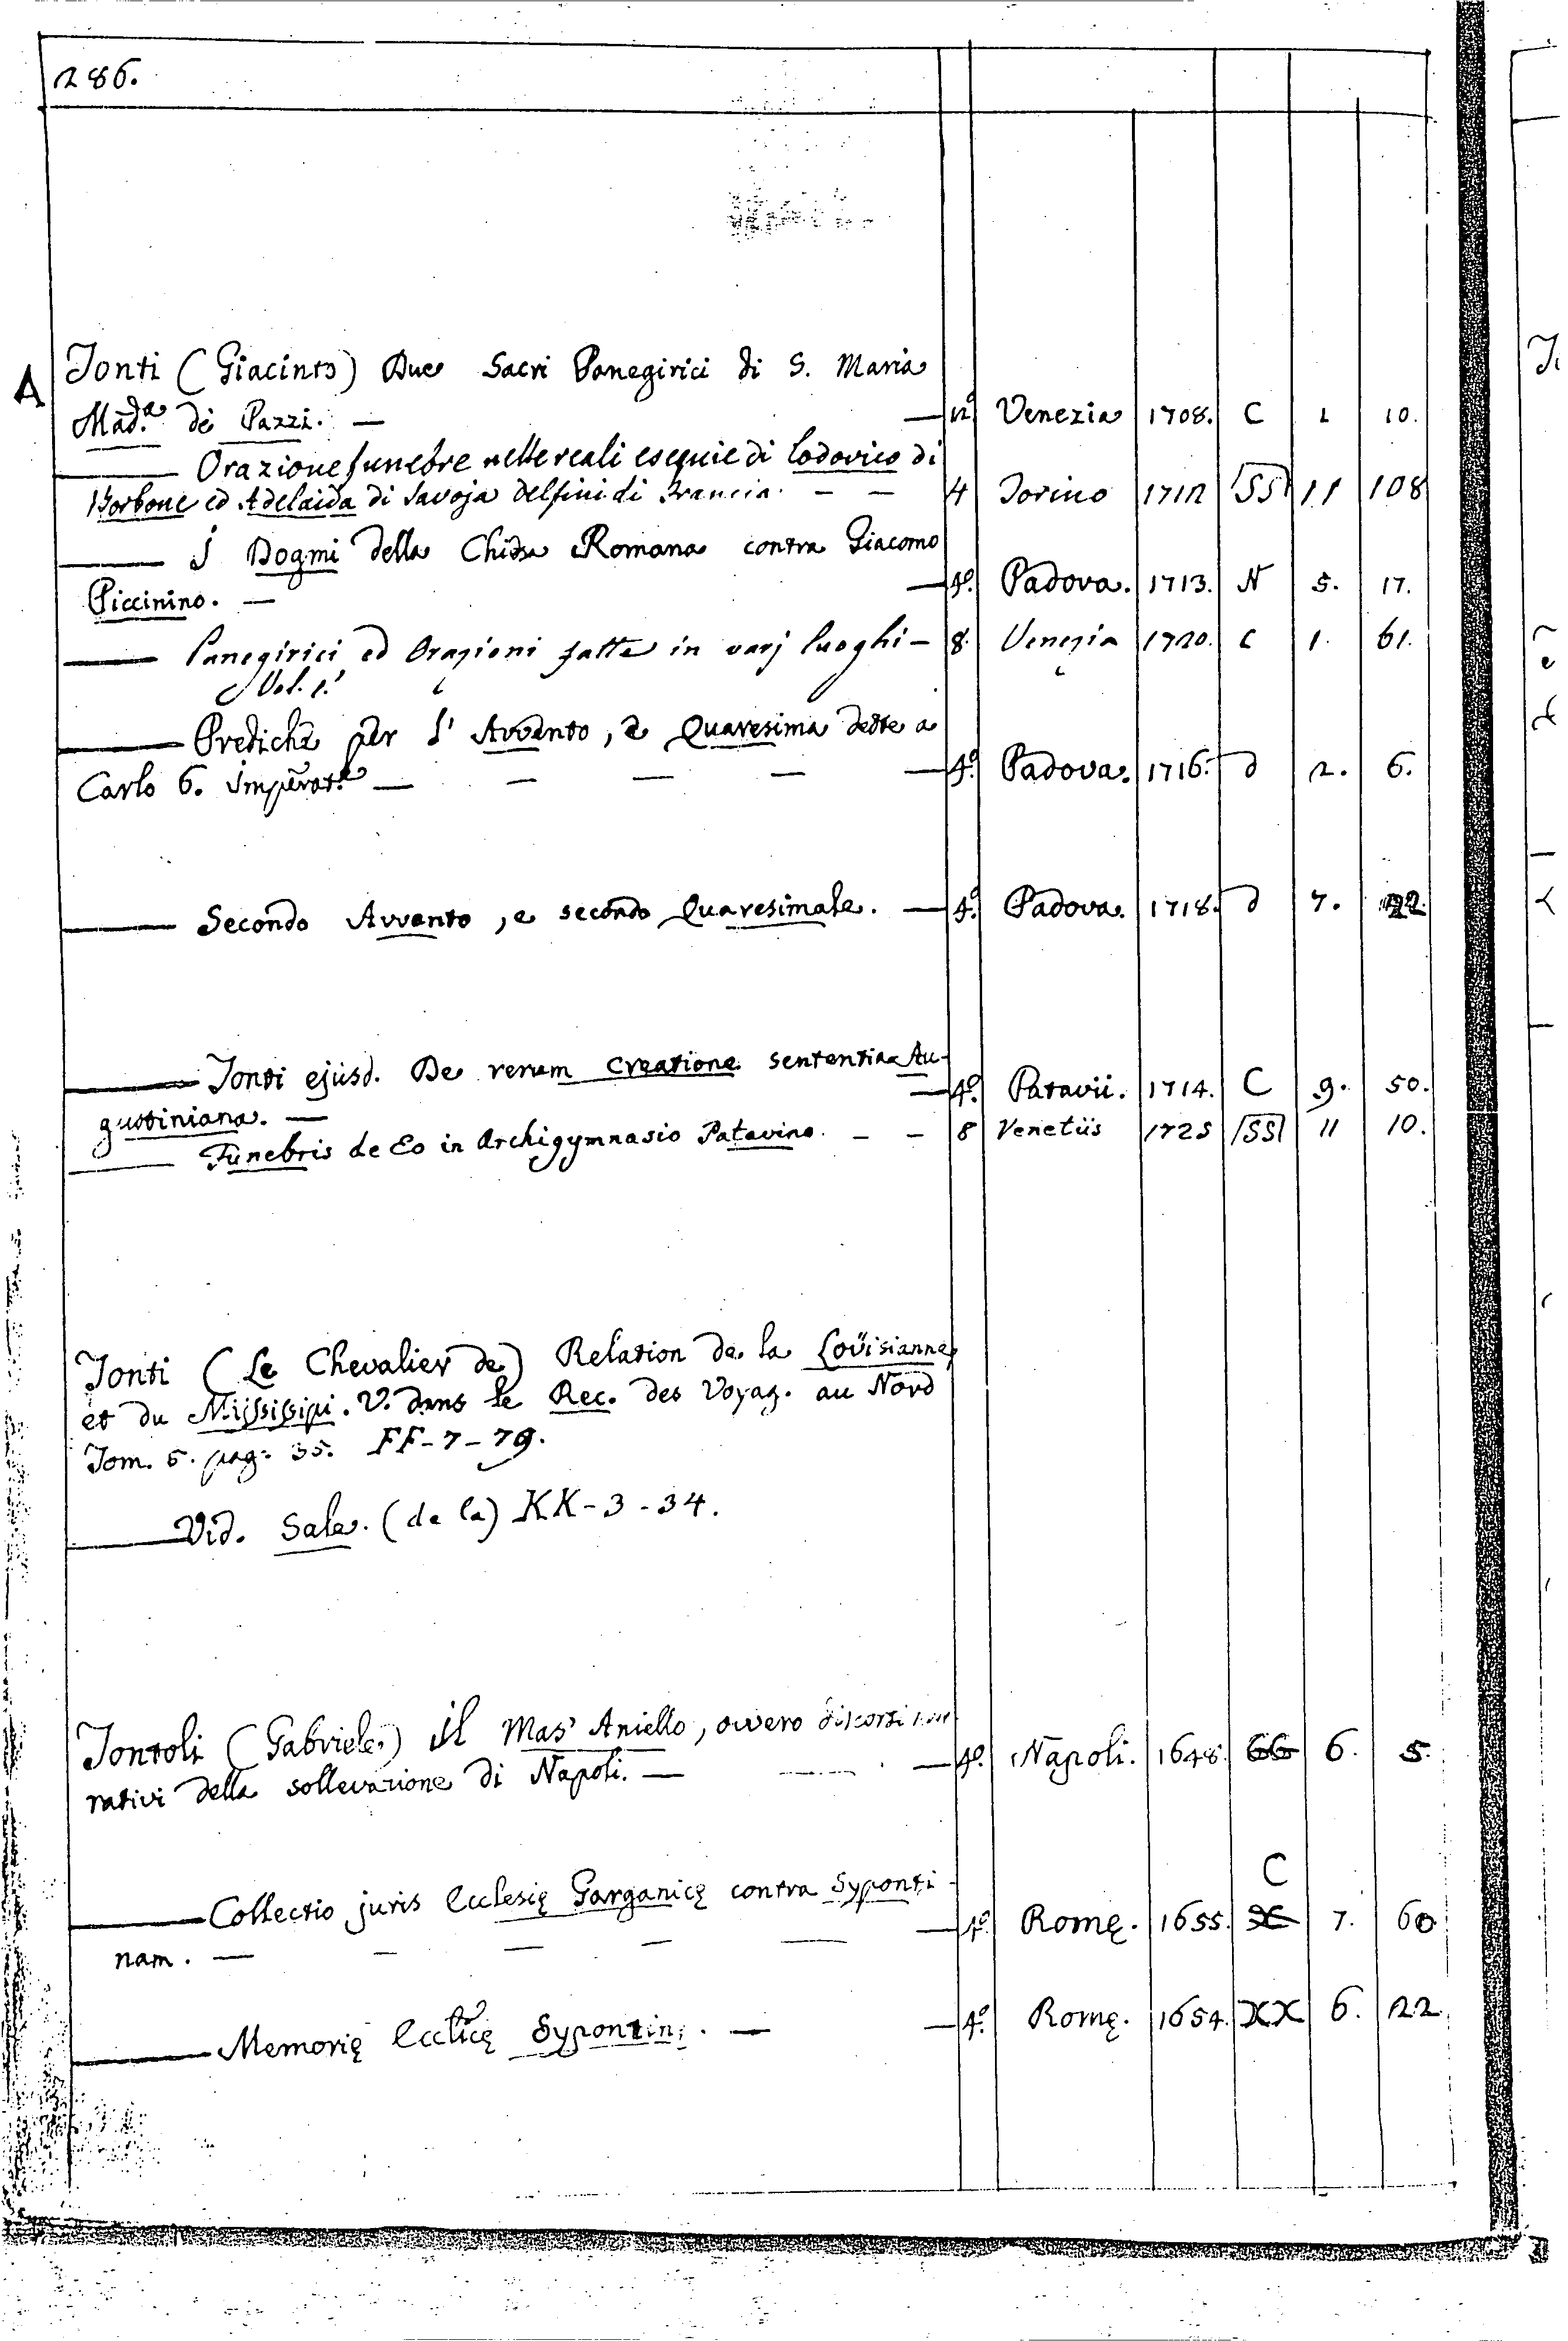 286.
A Tonti (Giacinto) Due Sacri Panegirici di S. Maria
Mad.ª de Pazzi. — — 12º Venezia 1708. C 1 10.
—— Orazione funebre nelle reali esequie di Lodovico di
Borbone ed Adelaida di Savoja Delfini di Francia. — — 4 Torino 1712 SS 11 108
—— I Dogmi della Chiesa Romana contra Giacomo
Piccinino. — — 4º. Padova. 1713. N 5. 17.
—— Panegirici ed Orazioni fatte in varj luoghi — 8. Venezia 1720. C 1. 61.
Vol. 1.
—— Prediche per l' Avvento, e Quaresima dette a
Carlo 6. Imperat.e — — — — — 4º. Padova. 1716. d 2. 6.
—— Secondo Avvento, e secondo Quaresimale. — 4º. Padova. 1718. d 7. 22.
—— Tonti ejusd. De rerum creatione sententia Au-
gustiniana. — — 4º. Patavii. 1714. C 9. 50.
—— Funebris de Eo in Archigymnasio Patavino. — — 8 Venetiis 1725 SS 11 10.
Tonti (Le Chevalier de) Relation de la Loüisianne,
et du Mississipi. V. dans le Rec. des Voyag. au Nord
Tom. 5. pag. 35. FF-7-79.
—— Vid. Sale. (de la) KK-3-34.
Tontoli (Gabriele.) Il Mas' Aniello, overo discorsi nar
rativi della sollevazione di Napoli. — — — 4º. Napoli. 1648. GG 6. 5.
—— Collectio juris Ecclesię Garganicę contra Syponti-
nam. — — — — — — 4º. Romę. 1655. C 7. 60
—— Memorię Ecclicę Sypontin. — — 4º. Romę. 1654. XX 6. 22